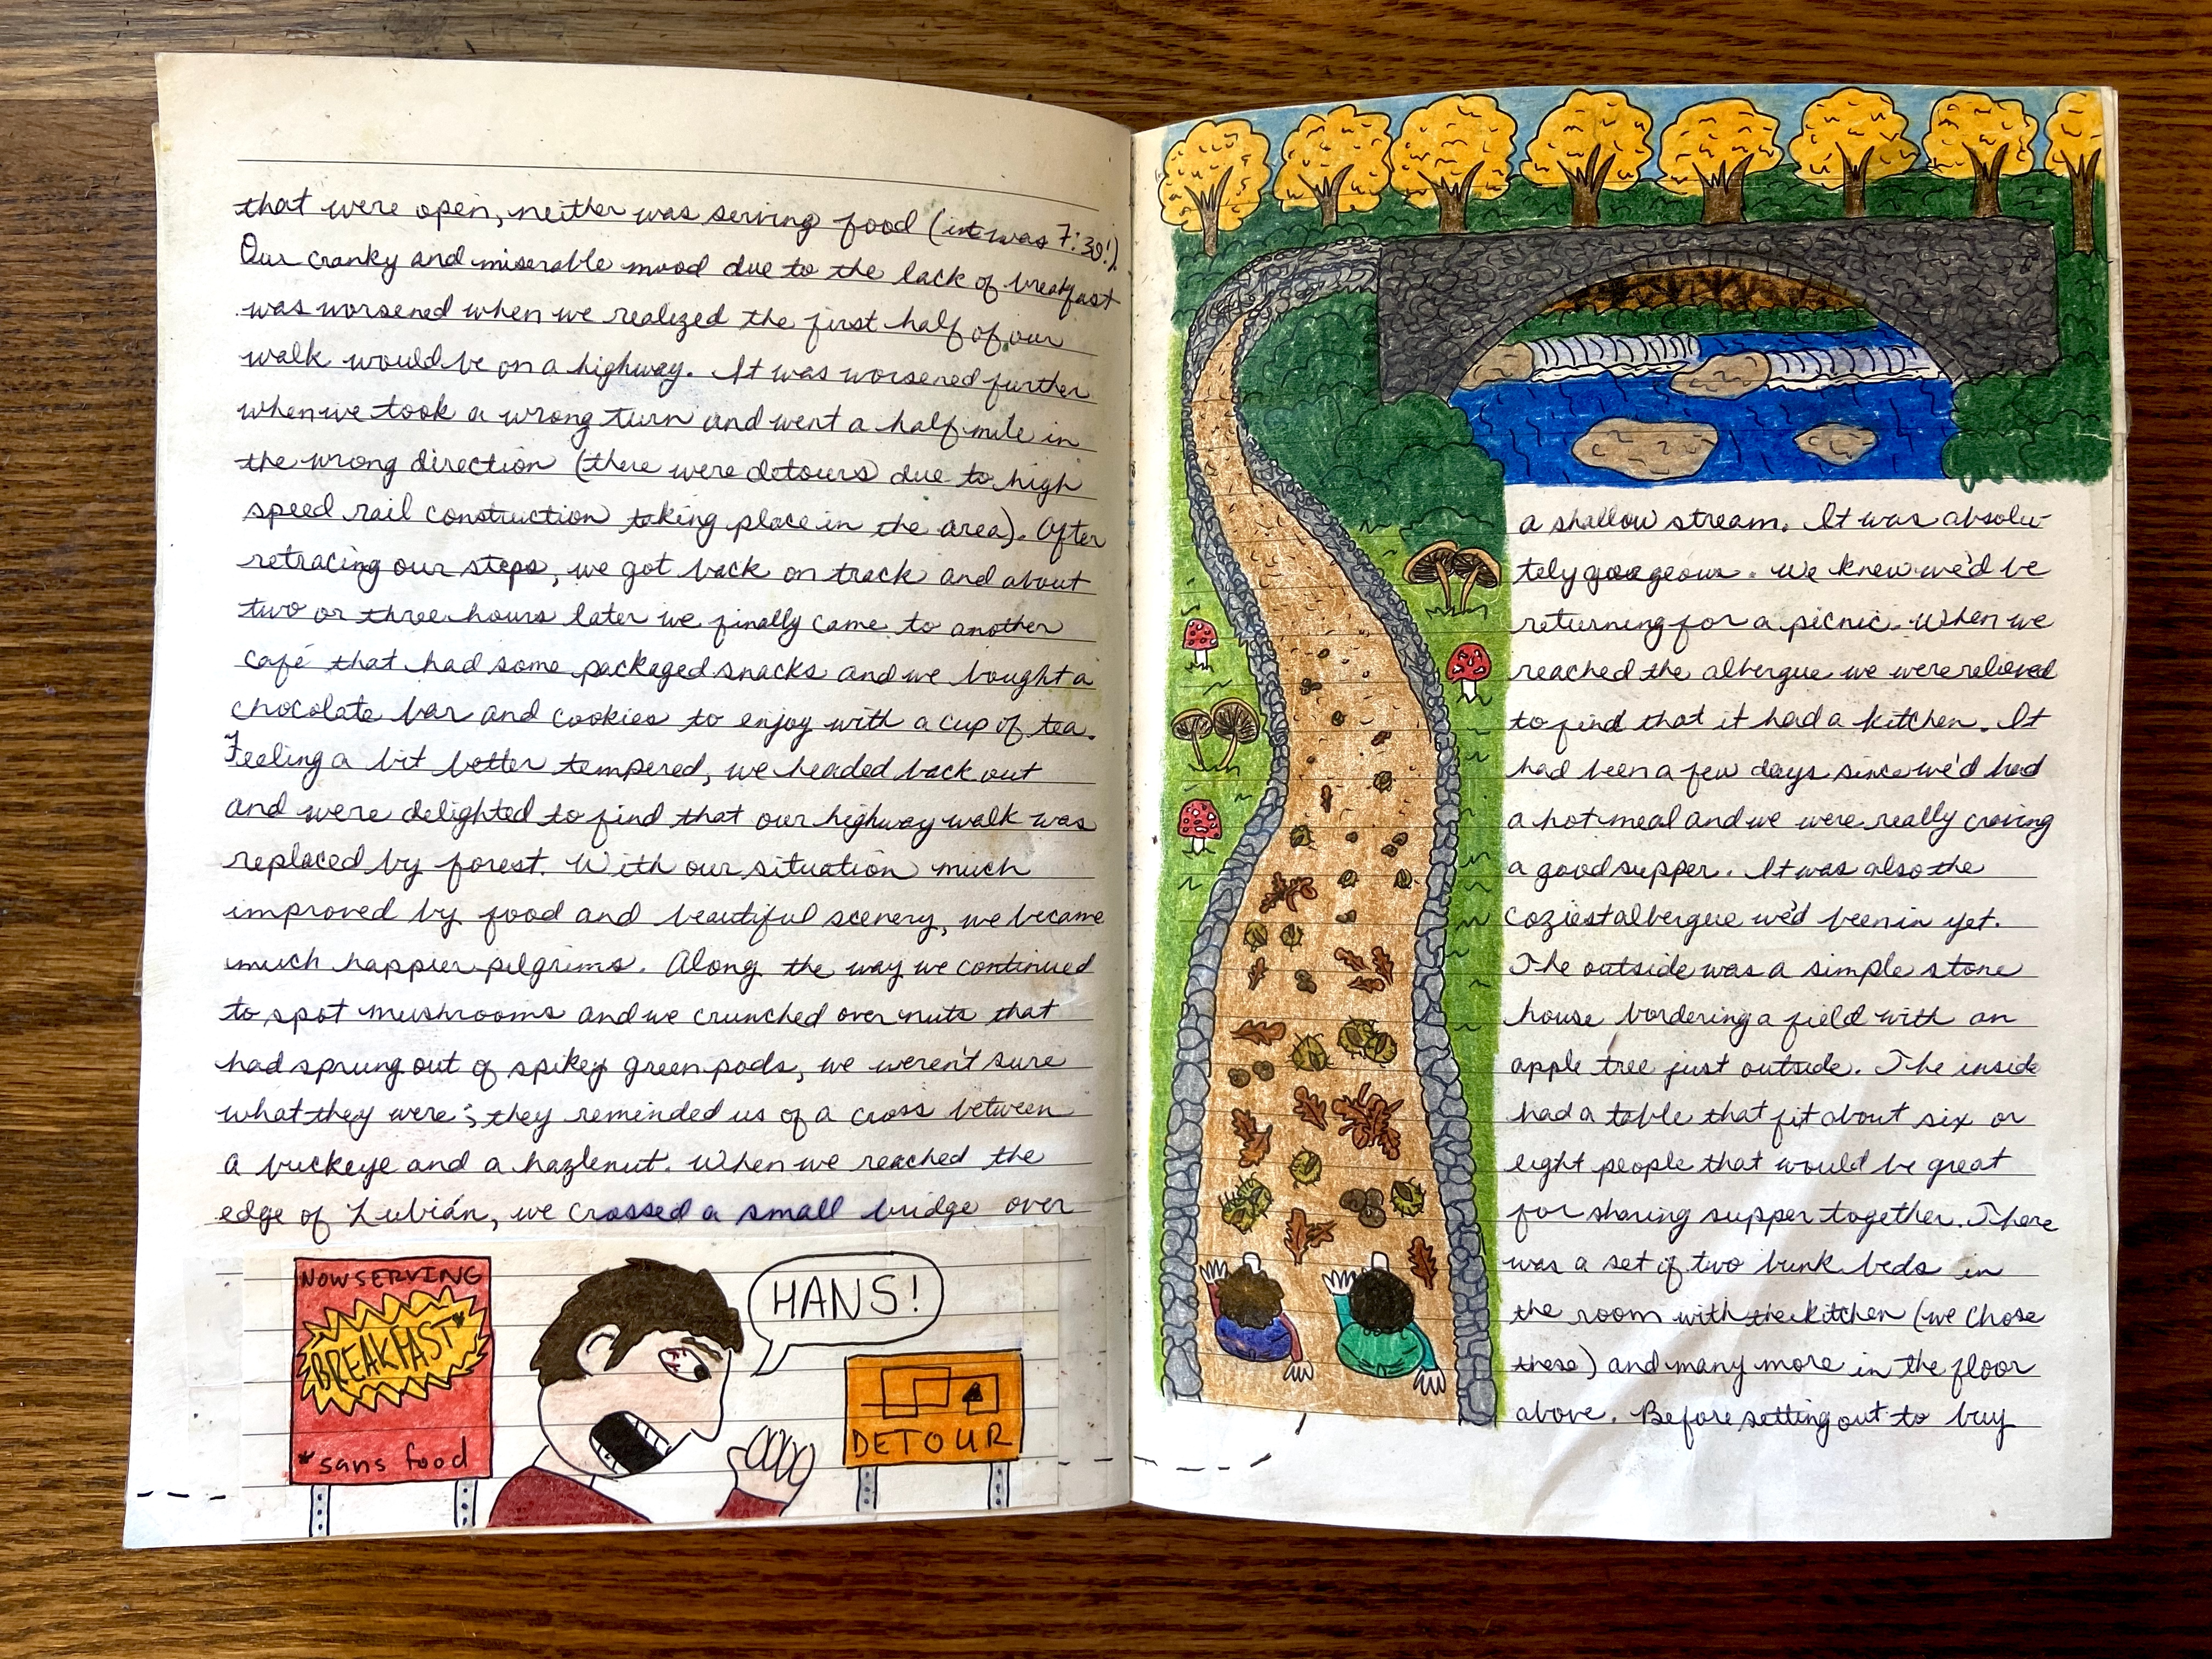 that were open, neither was serving food (it was 7:30!).
Our cranky and miserable mood due to the lack of breakfast
was worsened when we realized the first half of our
walk would be on a highway. It was worsened further
when we took a wrong turn and went a half mile in
the wrong direction (there were detours due to high
speed rail construction taking place in the area). After
retracing our steps, we got back on track and about
two or three hours later we finally came to another
café that had some packaged snacks and we bought a
chocolate bar and cookies to enjoy with a cup of tea.
Feeling a bit better tempered, we headed back out
and were delighted to find that our highway walk was
replaced by forest. With our situation much
improved by food and beautiful scenery, we became
much happier pilgrims. Along the way we continued
to spot mushrooms and we crunched over nuts that
had sprung out of spikey green pods, we weren't sure
what they were; they reminded us of a cross between
a buckeye and a hazlenut. When we reached the
edge of Lubián, we crossed a small bridge over
NOW SERVING
BREAKFAST*
*sans food
HANS!
DETOUR
a shallow stream. It was absolu-
tely gorgeous. We knew we'd be
returning for a picnic. When we
reached the albergue we were relieved
to find that it had a kitchen. It
had been a few days since we'd had
a hot meal and we were really craving
a good supper. It was also the
coziest albergue we'd been in yet.
The outside was a simple stone
house bordering a field with an
apple tree just outside. The inside
had a table that fit about six or
eight people that would be great
for sharing supper together. There
was a set of two bunk beds in
the room with the kitchen (we chose
these) and many more in the floor
above. Before setting out to buy